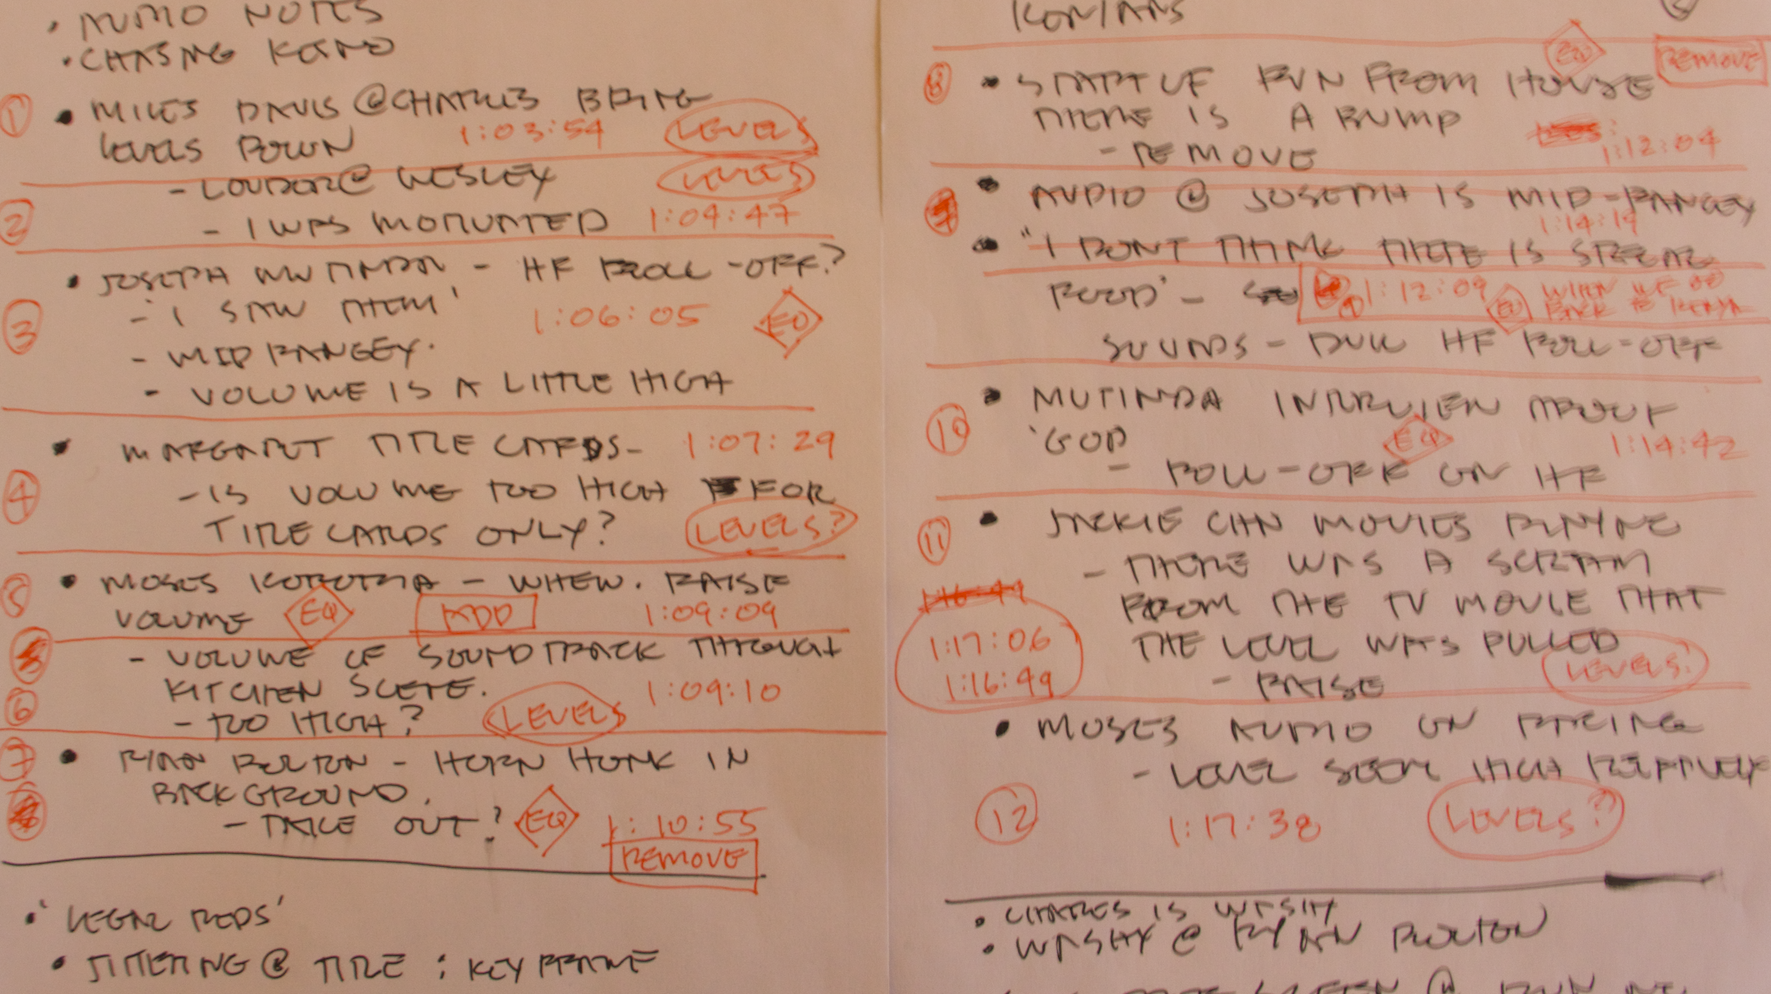 • AUDIO NOTES
• CHASING
① • MILES DAVIS @ CHARLES BRING
LEVELS DOWN 1:03:54 LEVELS
- LOUDER @ WESLEY LEVELS
② - I WAS MOTIVATED 1:04:47
• JOSEPH MUTINDA - HF ROLL-OFF?
③ - 'I SAW THEM' 1:06:05 EQ
- MID RANGEY.
- VOLUME IS A LITTLE HIGH
• MARGARET TITLE CARDS - 1:07:29
④ - IS VOLUME TOO HIGH FOR
TITLE CARDS ONLY? LEVELS?
⑤ • MOSES - WHEW. RAISE
VOLUME EQ ADD 1:09:09
- VOLUME OF SOUNDTRACK THROUGH
⑥ KITCHEN SCENE. 1:09:10
- TOO HIGH? LEVELS
⑦ • RYAN BOLTON - HORN HONK IN
BACKGROUND.
- TAKE OUT? EQ 1:10:55
REMOVE
• 'LEGAL PADS'
• JITTERING @ TITLE : KEYFRAME
KENYANS
EQ REMOVE
⑧ • START OF RUN FROM HOUSE
THERE IS A BUMP
- REMOVE 1:12:04
• AUDIO @ JOSEPH IS MID-RANGEY
1:14:19
• "I DONT THINK THERE IS SPECIAL
FOOD' - 1:12:09 EQ WHEN WE GO
BACK TO KENYA
SOUNDS - DULL HF ROLL-OFF
• MUTINDA INTERVIEW ABOUT
⑩ 'GOD EQ 1:14:42
- ROLL-OFF ON HF
⑪ • JACKIE CHAN MOVIES PLAYING
- THERE WAS A SCREAM
FROM THE TV MOVIE THAT
1:17:06 THE LEVEL WAS PULLED
1:16:49 - RAISE LEVELS?
• MOSES AUDIO ON RACING
- LEVEL SEEM HIGH RELATIVELY
⑫ 1:17:38 LEVELS?
• CHARLES IS WASHY
• WASHY @ RYAN BOLTON